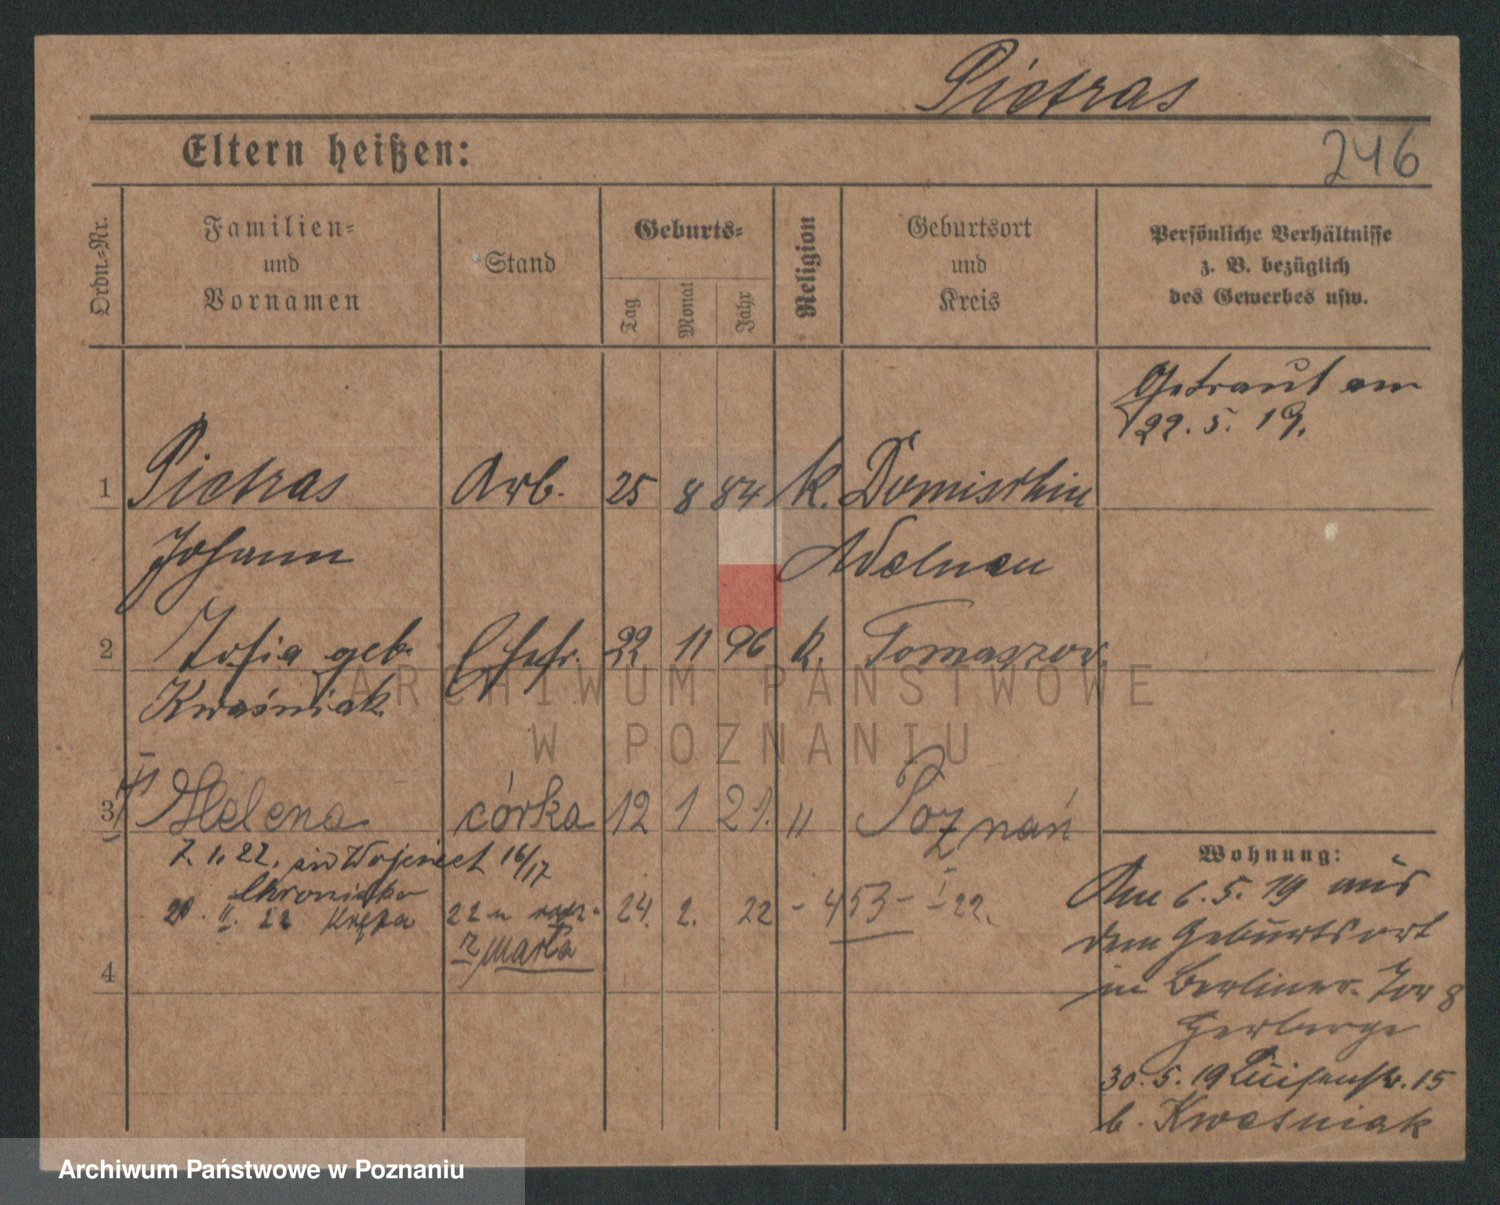 Pietras
Eltern heißen:
246
Ordn.-Nr.
Familien-
und
Vornamen
Stand
Geburts-
Tag
Monat
Jahr
Religion
Geburtsort
und
Kreis
Persönliche Verhältnisse
z. B. bezüglich
des Gewerbes usw.
Getraut am
22. 5. 19.
1 Pietras Arb. 25 8 84 k.
Johann Adelnau
2 Zofia geb. Ehefr. 22 11 96 k. Tomaszow.
Kwaśniak
3 Helena córka 12 1 21. " Poznań
7. 1. 22. Wojciech 16/17
20. II. 22 Krępa 22 24. 2. 22 - 453 - I 22.
zmarła
4
Wohnung:
Am 6. 5. 19 aus
dem Geburtsort
in Berliner Tor 8
Herberge
30. 5. 19 Luisenstr. 15
b. Kwasniak
ARCHIWUM PAŃSTWOWE
W POZNANIU
Archiwum Państwowe w Poznaniu